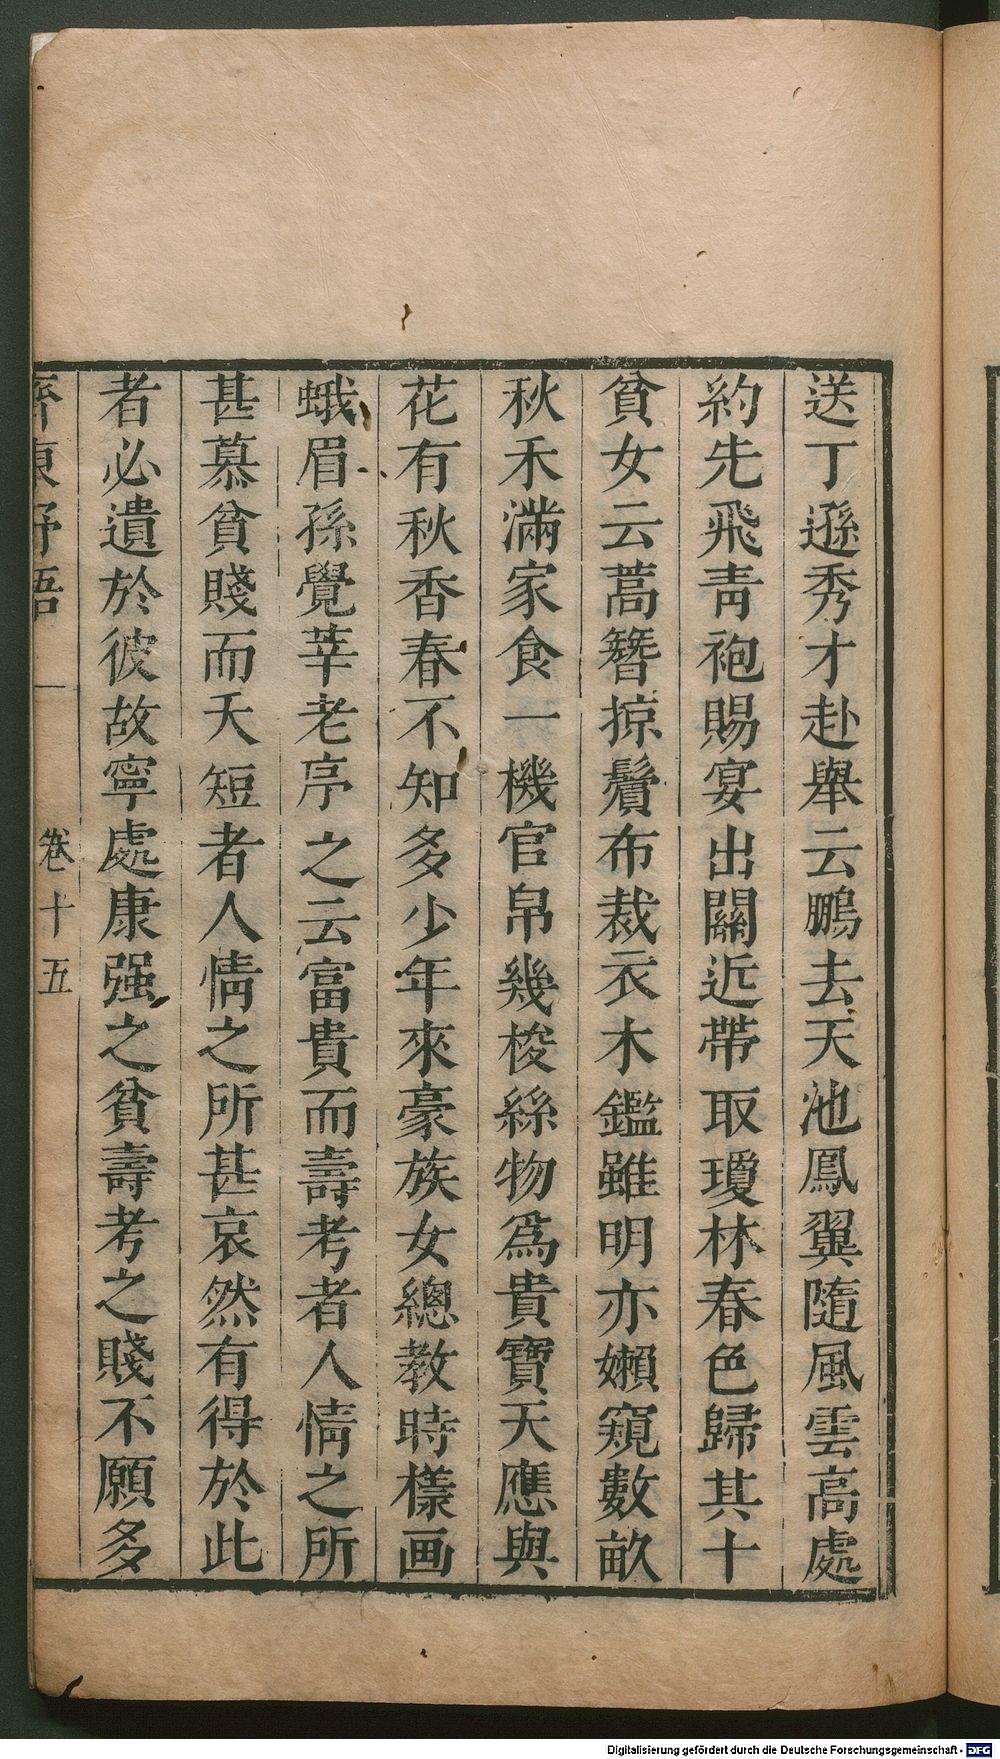 送丁遜秀才赴舉云鵬去天池鳳翼隨風雲高處
約先飛靑袍賜宴出關近帶取瓊林春色歸其十
貧女云蒿簪掠鬢布裁衣木鑑雖明亦嬾窺數畝
秋禾滿家食一機官帛幾梭絲物爲貴寶天應與
花有秋香春不知多少年來豪族女總教時樣画
蛾眉孫覺莘老序之云富貴而壽考者人情之所
甚慕貧賤而夭短者人情之所甚哀然有得於此
者必遺於彼故寧處康强之貧壽考之賤不願多
齊東野語 一 卷十五
Digitalisierung gefördert durch die Deutsche Forschungsgemeinschaft - DFG